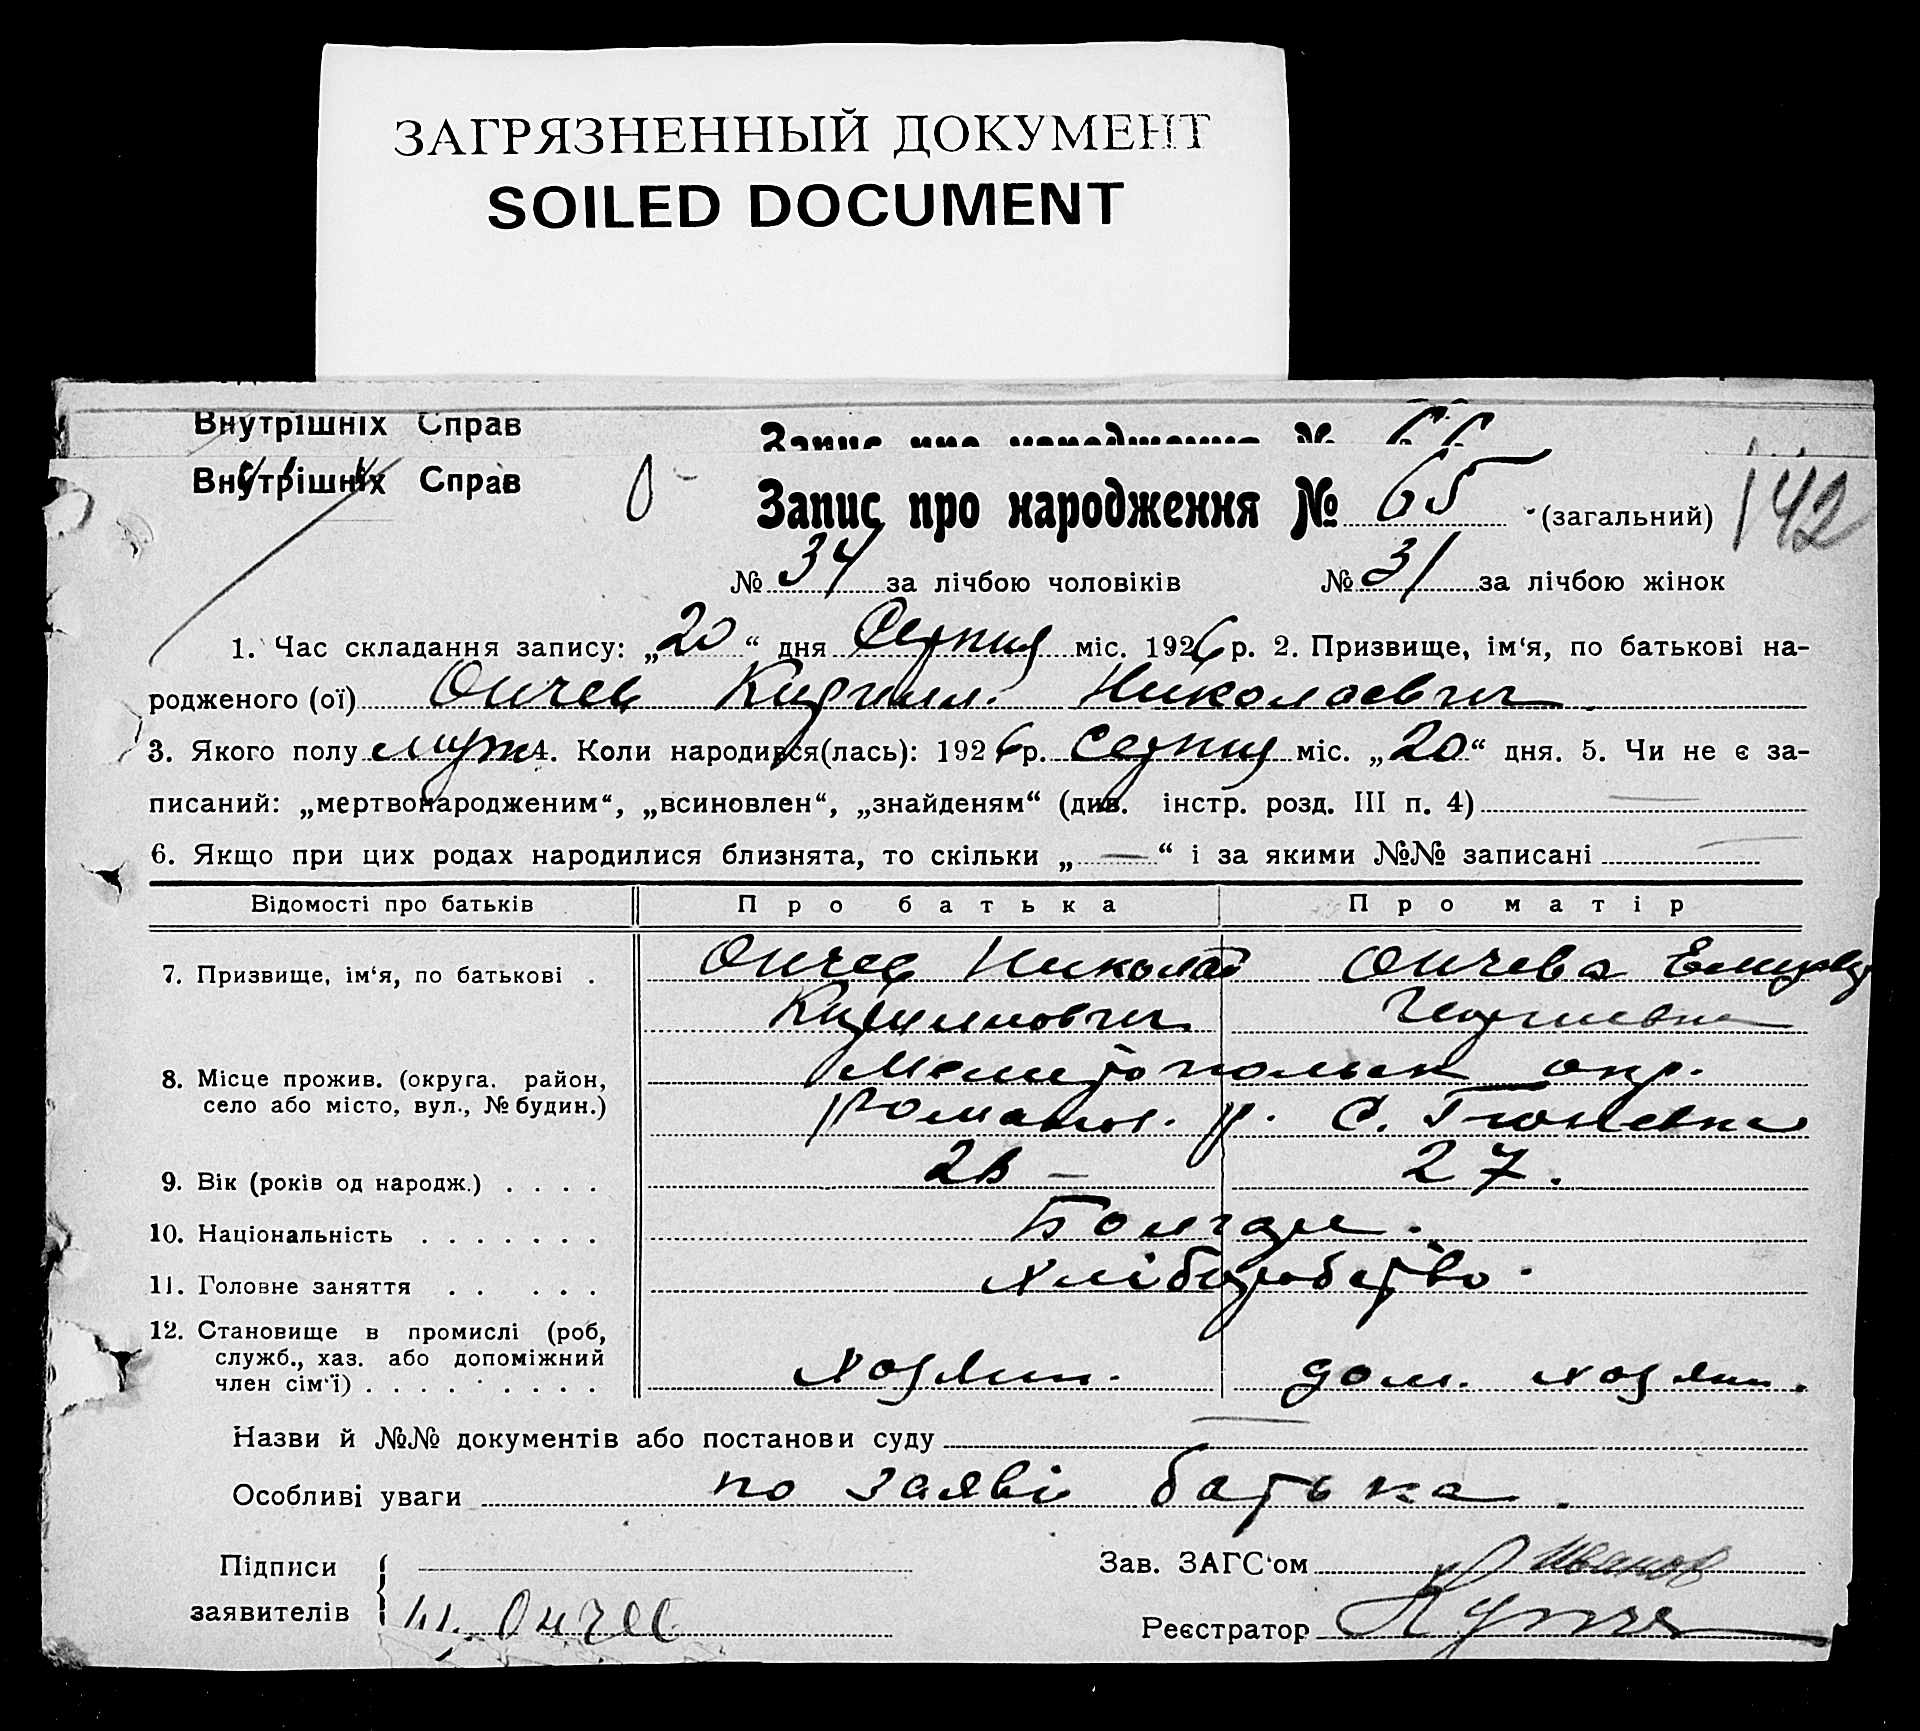 ЗАГРЯЗНЕННЫЙ ДОКУМЕНТ
SOILED DOCUMENT
Внутрішніх Справ
Запис про народження № 66
Внутрішніх Справ
Запис про народження № 65 (загальний) 142
№ 34 за лічбою чоловіків № 31 за лічбою жінок
1. Час складання запису: „20“ дня Серпня міс. 1926 р. 2. Призвище, ім‘я, по батькові на-
родженого (ої) Ончев Кирилл Николаевич
3. Якого полу муж 4. Коли народився(лась): 1926 р. Серпня міс. „20“ дня. 5. Чи не є за-
писаний: „мертвонародженим“, „всиновлен“, „знайденям“ (див. інстр. розд. III п. 4) —
6. Якщо при цих родах народилися близнята, то скільки „—“ і за якими №№ записані —
Відомості про батьків Про батька Про матір
7. Призвище, ім‘я, по батькові . Ончев Николай Ончева
Кириллович Георгиевна
8. Місце прожив. (округа. район, Мелитопольск окр.
село або місто, вул., № будин.) Романов. р. С. Гюневка
9. Вік (років од народж.) . . . . — 27.
10. Національність . . . . . . . Болгари.
11. Головне заняття . . . . . Хліборобство.
12. Становище в промислі (роб,
служб., хаз. або допоміжний
член сім‘ї) . . . . . . . . . Хозяин. дом. хозяин.
Назви й №№ документів або постанови суду —
Особливі уваги по заяві батька.
Підписи Зав. ЗАГС‘ом Иванов
заявителів Н. Ончев
Реєстратор